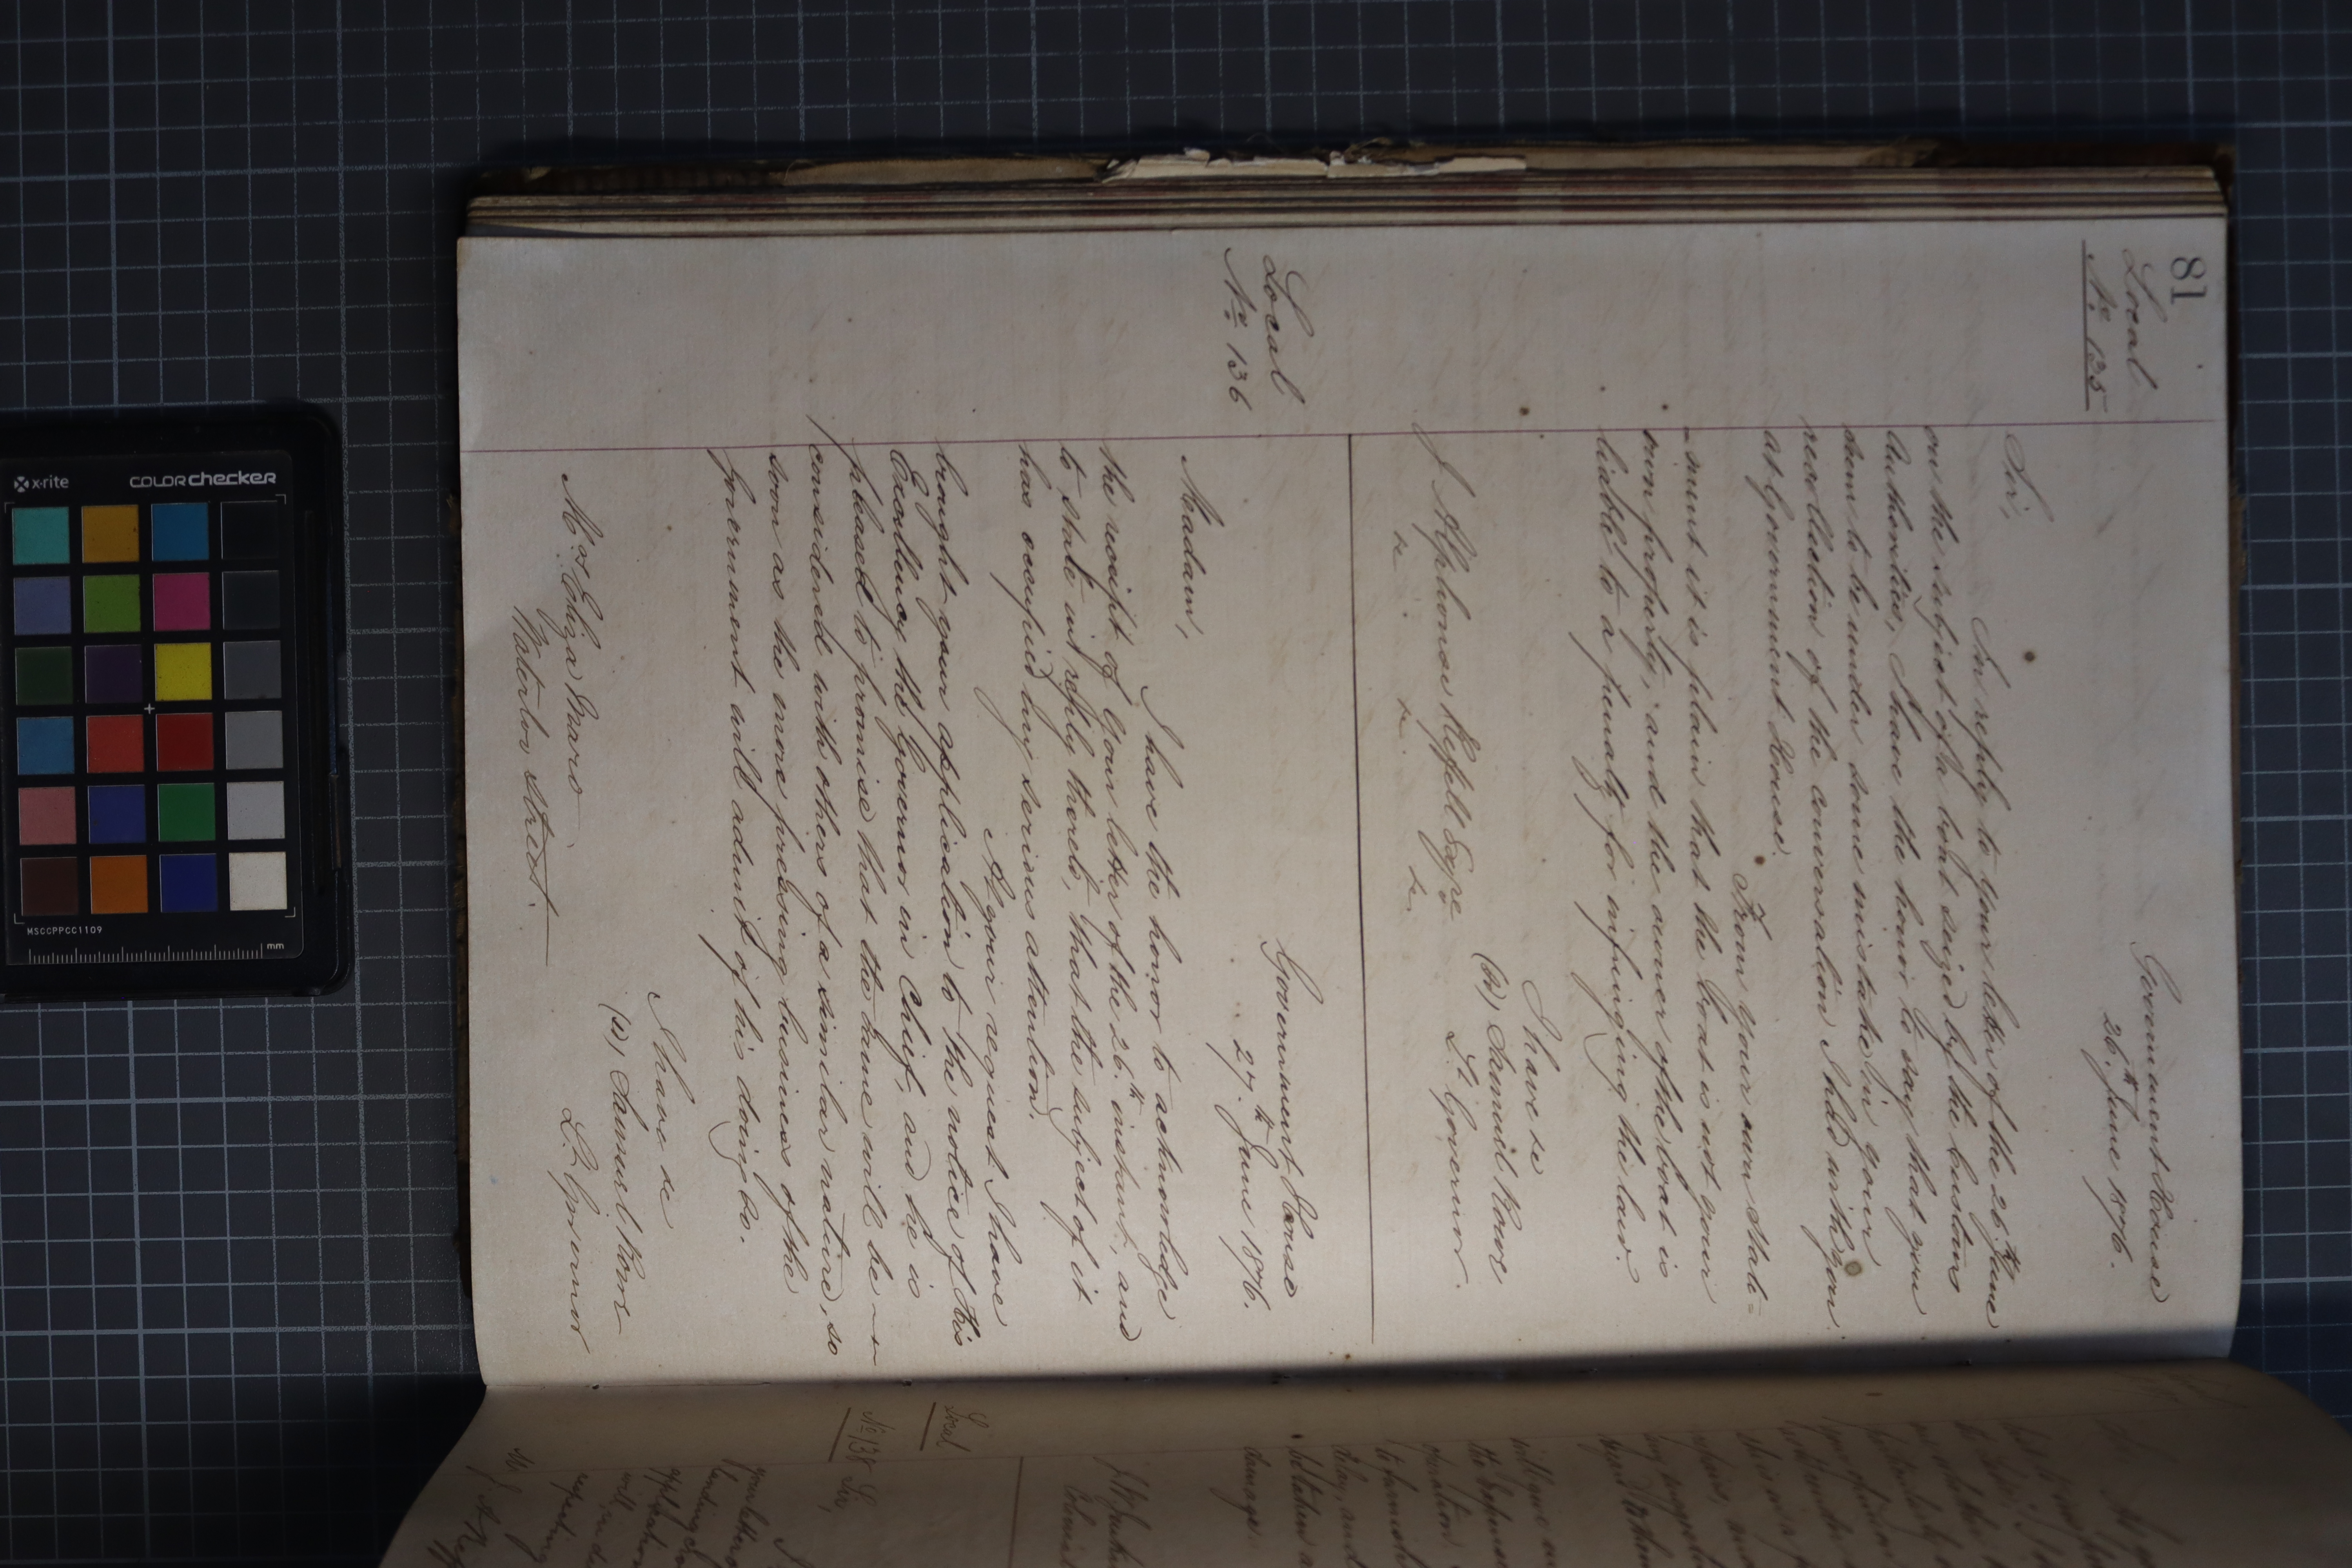 81
Local
No. 135
Government House
26th June 1876.
Sir,
In reply to your letter of the 26th June
on the subject of a boat seized by the Customs
Authorities, I have the honor to say that you
seem to be under some mistake in your
recollection of the conversation I had with you
at Government House.
From your own state=
-ment it is plain that the boat is not your
own property; and the owner of the boat is
liable to a penalty for infringing the law.
I have &c
(Sd) Samuel Rowe
Lt. Governor.
J Alphonse Refell Esqre
&c. &c. &c.
Local
No. 136
Government House
27th June 1876.
Madam,
I have the honor to acknowledge
the receipt of your letter of the 26th instant, and
to state in reply thereto, that the subject of it
has occupied my serious attention.
At your request I have
brought your application to the notice of His
Excellency the Governor in Chief, and he is
pleased to promise that the same will be
considered with others of a similar nature, so
soon as the more pressing business of the
Government will admit of his doing so.
I have &c
(Sd) Samuel Rowe
Lt. Governor
Mrs. Eliza
Waterloo Street.
Local
No 138
Sir,
your letter
will
respecting
damage
x-rite
COLORchecker
MSCCPPCC1109
mm